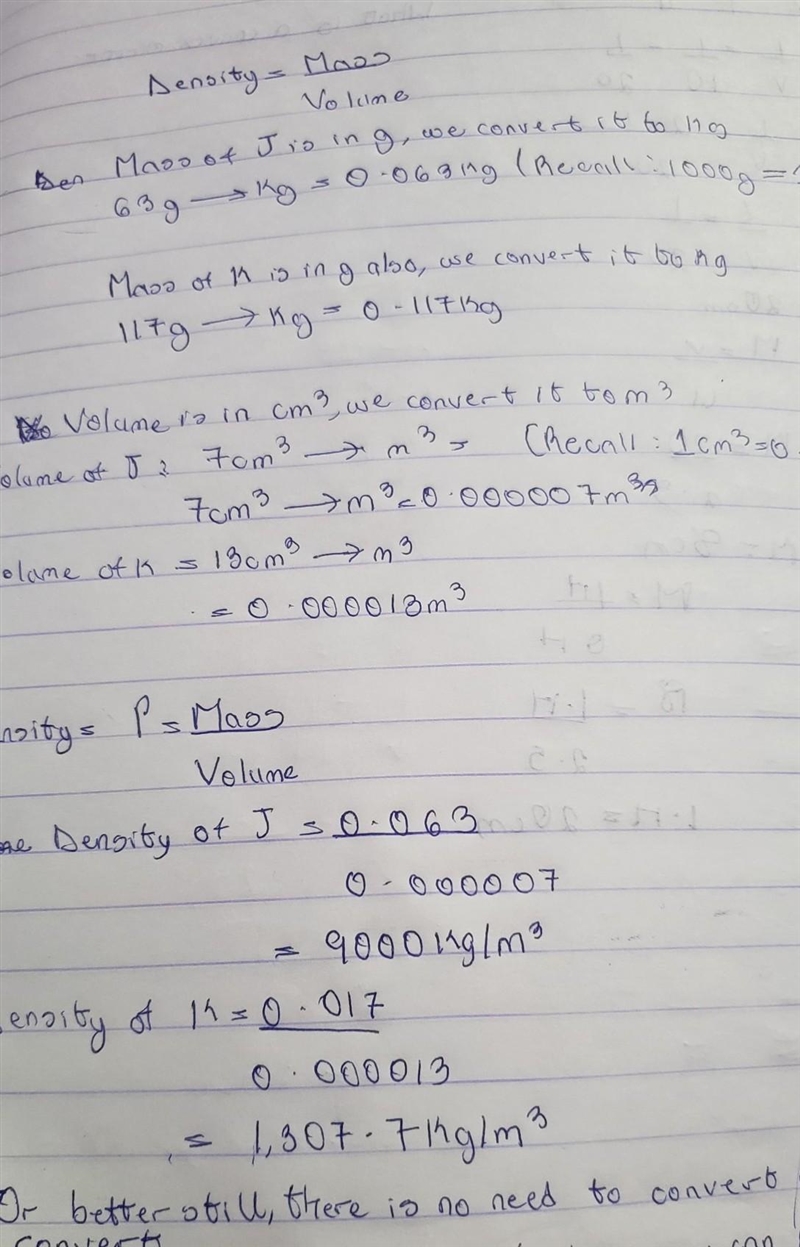 Density = Mass
Volume
Mass of J is in g, we convert it to Kg
63g → Kg = 0.063Kg (Recall : 1000g =
Mass of K is in g also, we convert it to Kg
117g → Kg = 0.117Kg
Volume is in cm³, we convert it to m³
olume of J : 7cm³ → m³ = (Recall : 1cm³=0.
7cm³ → m³ = 0.000007m³
olume of K = 13cm³ → m³
= 0.000013m³
nsity = ρ = Mass
Volume
Density of J = 0.063
0.000007
= 9000Kg/m³
ensity of K = 0.017
0.000013
= 1,307.7Kg/m³
Or better still, there is no need to convert